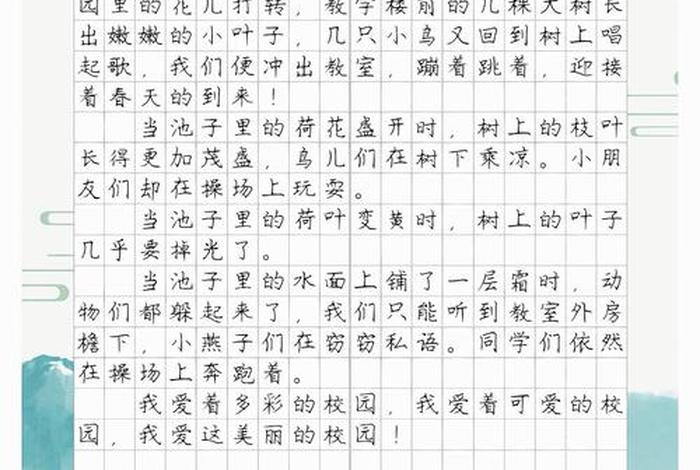 园里的花儿打转，教学楼前的几棵大树长
出嫩嫩的小叶子，几只小鸟又回到树上唱
起歌，我们便冲出教室，蹦着跳着，迎接
着春天的到来！
当池子里的荷花盛开时，树上的枝叶
长得更加茂盛，鸟儿们在树下乘凉。小朋
友们却在操场上玩耍。
当池子里的荷叶变黄时，树上的叶子
几乎要掉光了。
当池子里的水面上铺了一层霜时，动
物们都躲起来了，我们只能听到教室外房
檐下，小燕子们在窃窃私语。同学们依然
在操场上奔跑着。
我爱着多彩的校园，我爱着可爱的校
园，我爱这美丽的校园！